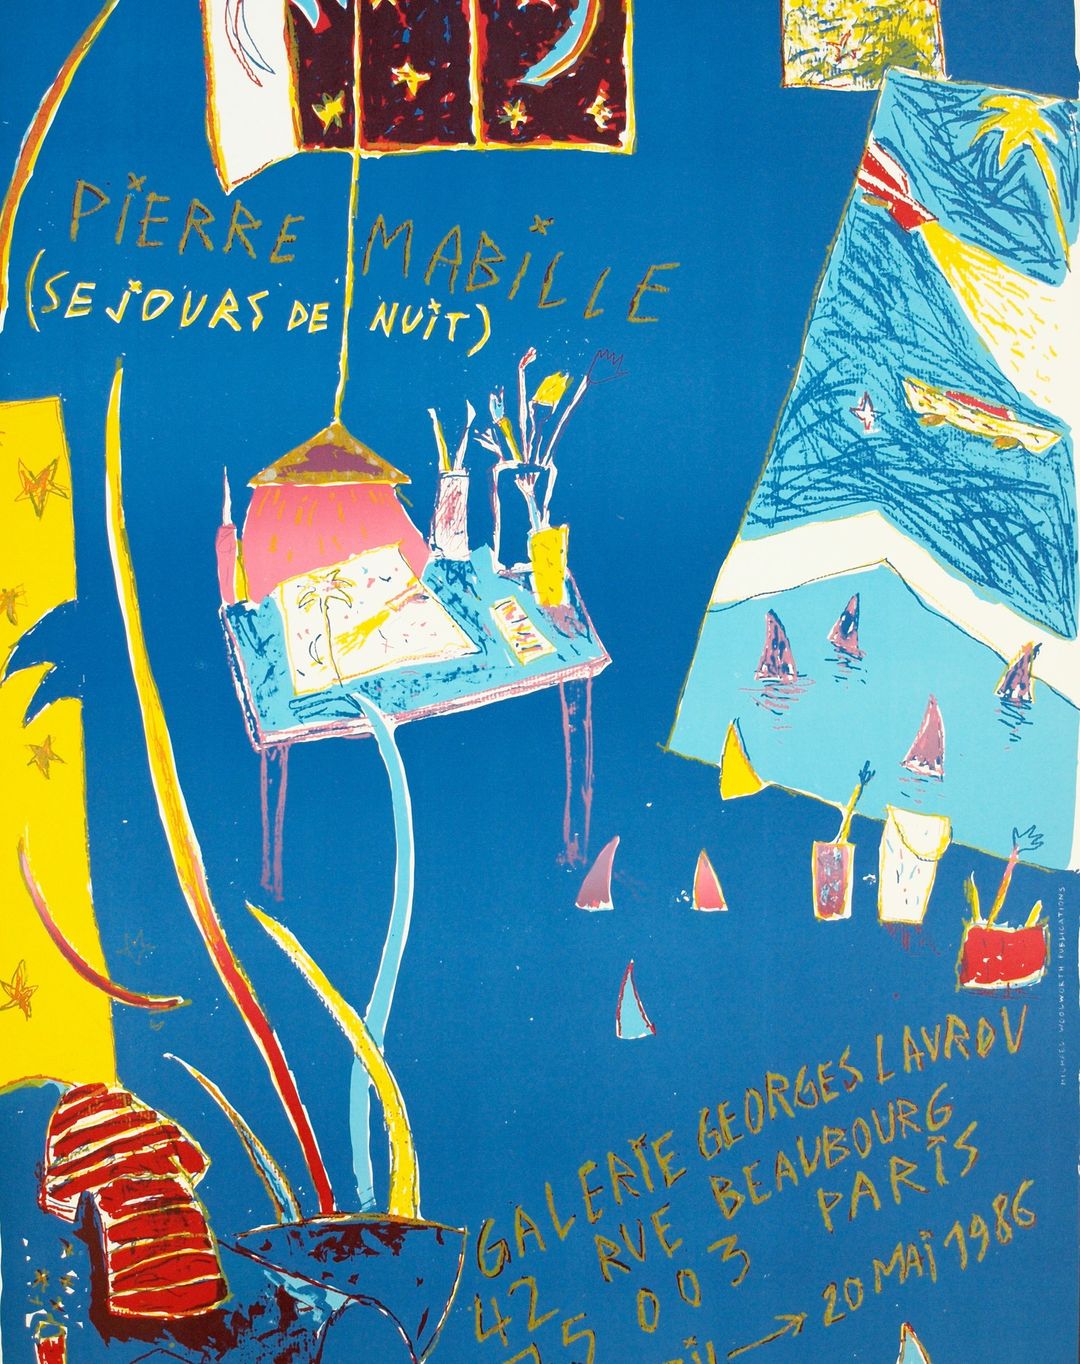 PiERRE MABiLLE
(SEJOURS DE NUiT)
MICHAEL WOOLWORTH PUBLICATIONS
GALERiE GEORGES LAVROV
42 RUE BEAUBOURG
75003 PARiS
→ 20 MAi 1986